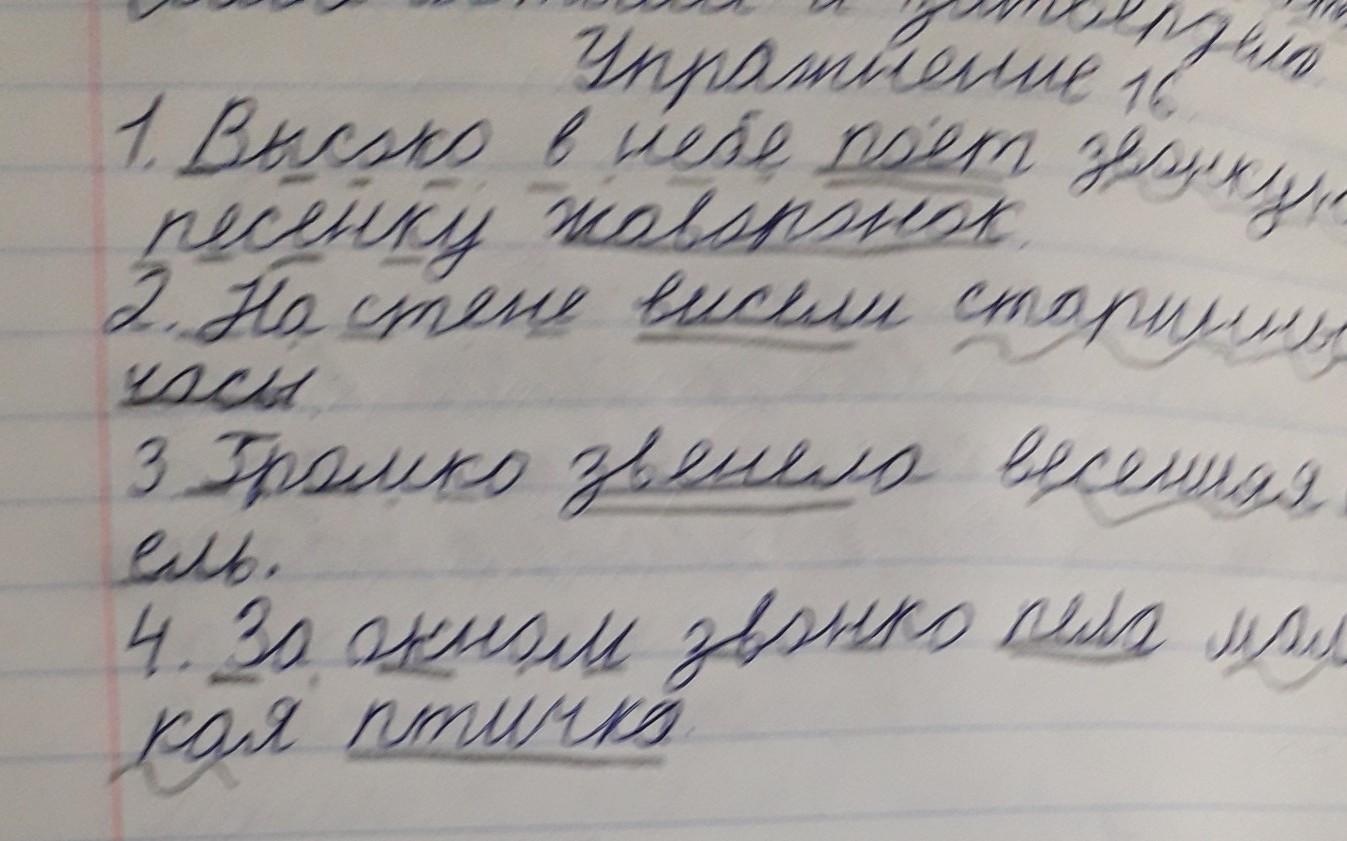 и
Упражнение 16
1. Высоко в небе поёт звонкую
песенку жаворонок.
2. На стене висели старинны
часы.
3 Громко звенела весенняя
ель.
4. За окном звонко пела мал
кая птичка.